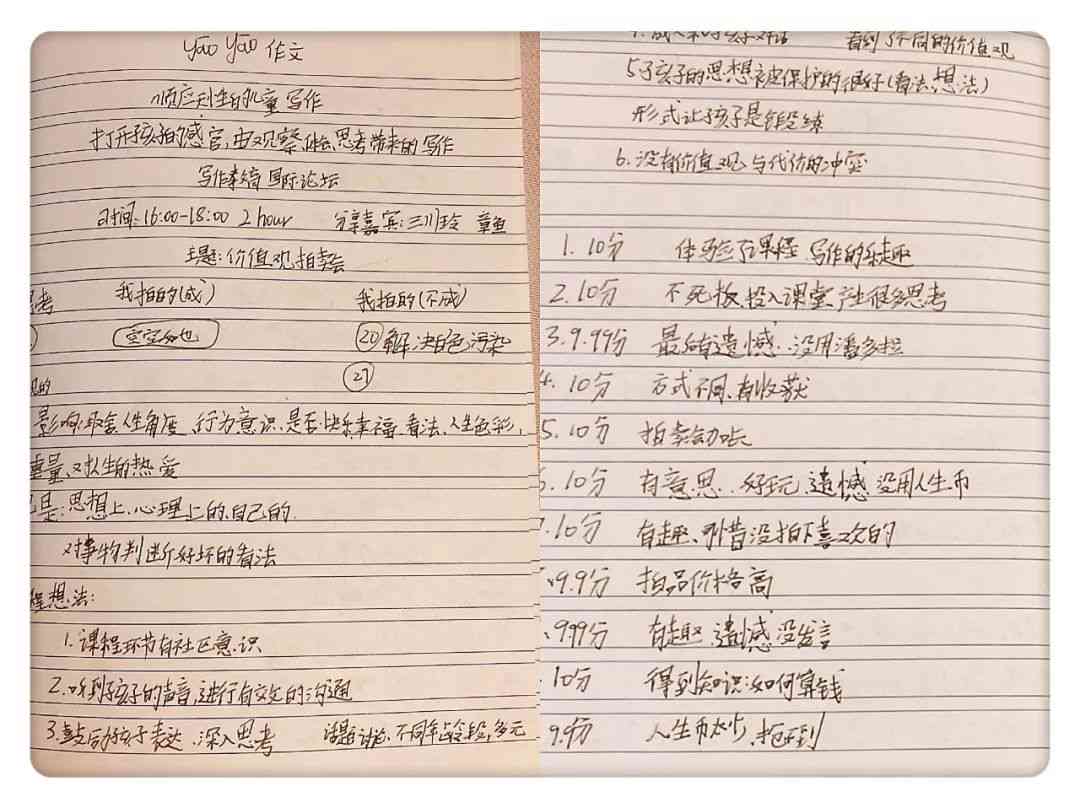 yāo yāo 作文
顺应天性的儿童写作
打开孩子的感官,由观察、体会、思考带来的写作
写作素培国际论坛
时间:16:00-18:00 2 hour 分享嘉宾:三川玲 章鱼
主题:价值观拍卖会
考 我拍的(成) 我拍的(不成)
空空如也 ⑳解决白色污染
㉗
的
影响:取舍、人生角度、行为意识、是否快乐幸福、看法、人生色彩,
重量、对人生的热爱
是:思想上、心理上的、自己的.
对事物判断好坏的看法
程想法:
1.课程环节有社区意识
2.听到孩子的声音,进行有效的沟通
3.鼓励孩子表达、深入思考 话题讨论、不同年龄段,多元
看到了不同的价值观
5.孩子的思想被保护的很好(看法、想法)
形式让孩子是锻练
6.没有价值观与代价的冲突
1. 10分 体验了课程、写作的乐趣
2. 10分 不死板、投入课堂、产生很多思考
3. 9.99分 最后有遗憾、没用潘多拉
4. 10分 方式不同、有收获
5. 10分 拍卖
10分 有意思、好玩、遗憾没用人生币
10分 有趣、可惜没拍下喜欢的
9.9分 拍品价格高
999分 有趣、遗憾没发言
10分 得到知识:如何算钱
9.9分 人生币太少、抢不到